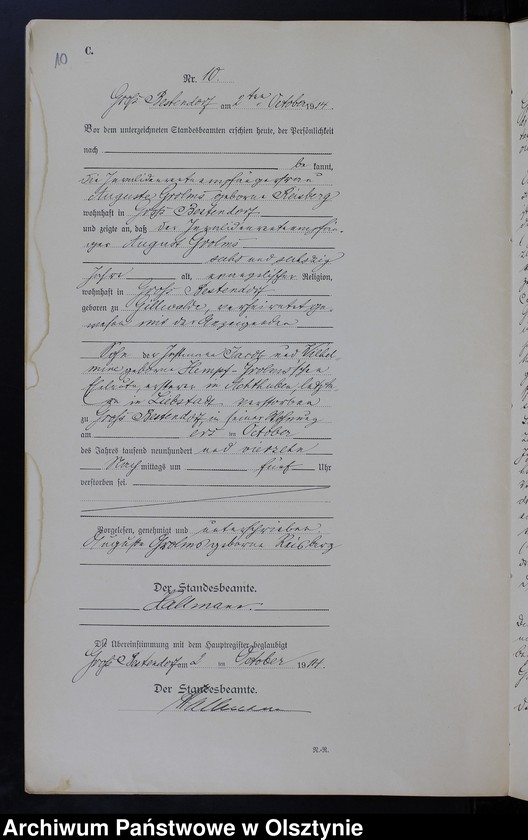 10
C.
Nr. 10.
Groß Bestendorf am 2ten October 1914.
Vor dem unterzeichneten Standesbeamten erschien heute, der Persönlichkeit
nach
be kannt,
die Invalidenrentempfängerfrau
Auguste Grolms geborne Reisberg
wohnhaft in Groß Bestendorf
und zeigte an, daß der Invalidenrentempfän-
ger August Grolms
sechs und
Jahre alt, evangelischer Religion,
wohnhaft in Groß Bestendorf
geboren zu Hillwalde, verheiratet ge-
wesen mit der Anzeigenden
Sohn der Instmann Jacob und Wilhel-
mine geborne Hempf-Grolms'schen
Eheleute, ersterer in letzte-
re in Liebstadt verstorben
zu Groß Bestendorf, in seiner Wohnung
am ers im October
des Jahres tausend neunhundert und vierzehn
Nach mittags um fünf Uhr
verstorben sei.
Vorgelesen, genehmigt und unterschrieben
Auguste Grolms geborne Reisberg
Der Standesbeamte.
Hallmann.
Die Übereinstimmung mit dem Hauptregister beglaubigt
Groß Bestendorf am 2 ten October 1914.
Der Standesbeamte.
Hallmann
N.-R.
Archiwum Państwowe w Olsztynie